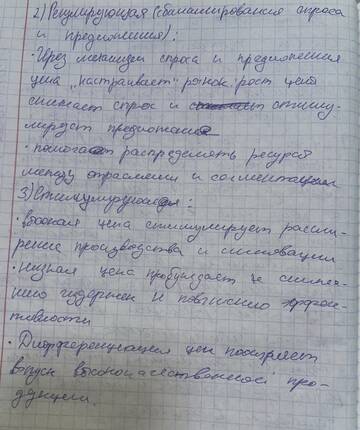 2) Регулирующая (балансирования спроса
и предложения):
• Через механизм спроса и предложения
цена „настраивает" рынок: рост цен
снижает спрос и стиму-
лирует предложение
• помогает распределять ресурсы
между отраслями и сегментами
3) Стимулирующая:
• высокая цена стимулирует расши-
рение производства и инновации
• низкая цена пробуждает к сниже-
нию издержек и повышению эффек-
тивности
• Дифференциация цен поощряет
выпуск высококачественной про-
дукции.